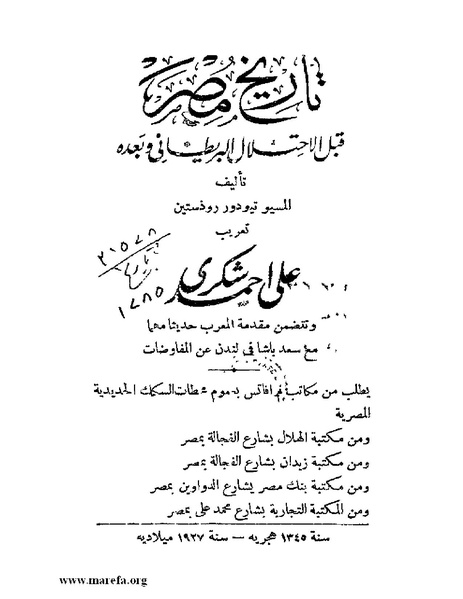 تاريخ مصر
قبل الاحتلال البريطاني وبعده
تأليف
المسيو تيودور روذستين
تعريب
٢١٥٧٨
علي احمد شكري
١٢٨٥
وتتضمن مقدمة المعرب حديثا مهما
مع سعد باشا في لندن عن المفاوضات
يطلب من مكاتب بعموم محطات السكك الحديدية
المصرية
ومن مكتبة الهلال بشارع الفجالة بمصر
ومن مكتبة زيدان بشارع الفجالة بمصر
ومن مكتبة بنك مصر بشارع الدواوين بمصر
ومن المكتبة التجارية بشارع محمد علي بمصر
سنة ١٣٤٥ هجريه — سنة ١٩٢٧ ميلاديه
www.marefa.org